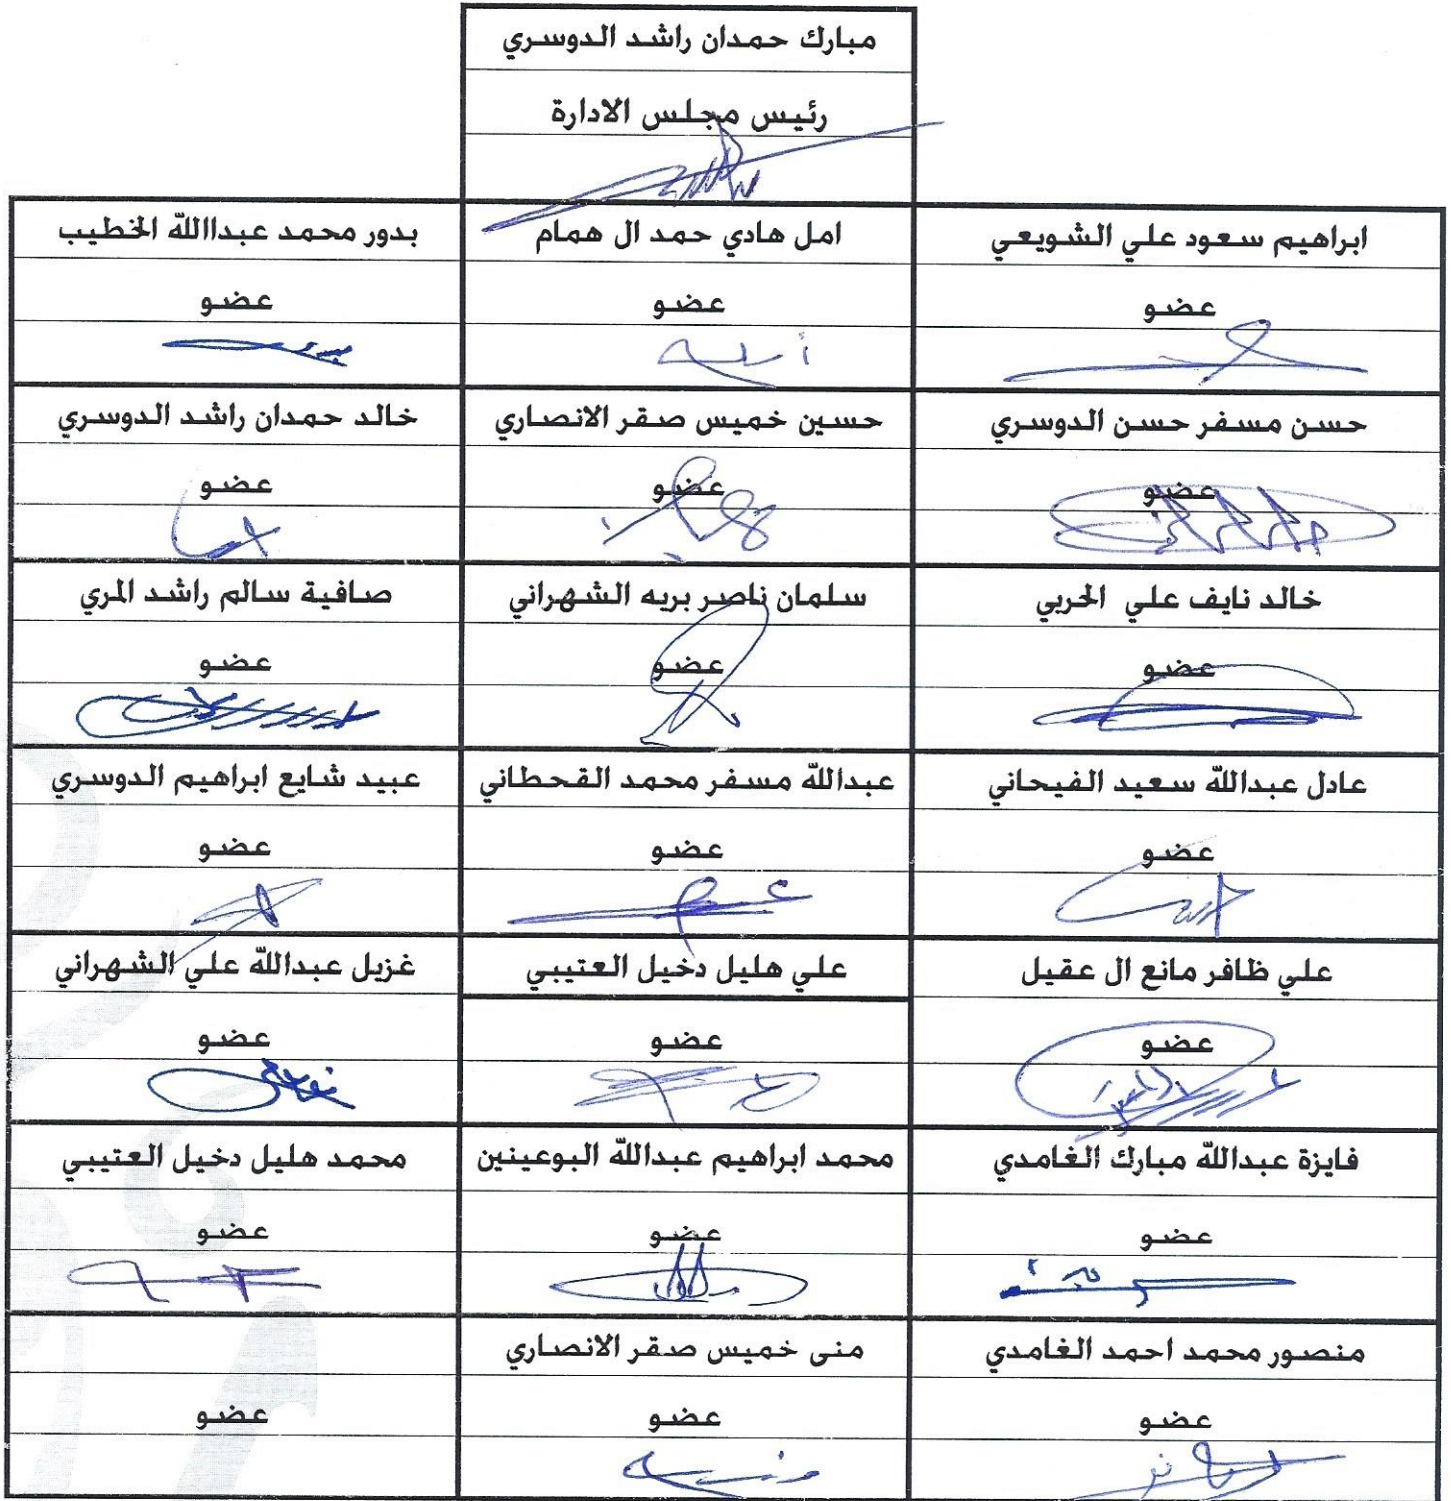 مبارك حمدان راشد الدوسري
رئيس مجلس الادارة
ابراهيم سعود علي الشويعي
امل هادي حمد ال همام
بدور محمد عبداالله الخطيب
عضو
عضو
عضو
حسن مسفر حسن الدوسري
حسين خميس صقر الانصاري
خالد حمدان راشد الدوسري
عضو
عضو
عضو
خالد نايف علي الحربي
سلمان ناصر بريه الشهراني
صافية سالم راشد المري
عضو
عضو
عضو
عادل عبدالله سعيد الفيحاني
عبدالله مسفر محمد القحطاني
عبيد شايع ابراهيم الدوسري
عضو
عضو
عضو
علي ظافر مانع ال عقيل
علي هليل دخيل العتيبي
غزيل عبدالله علي الشهراني
عضو
عضو
عضو
فايزة عبدالله مبارك الغامدي
محمد ابراهيم عبدالله البوعينين
محمد هليل دخيل العتيبي
عضو
عضو
عضو
منصور محمد احمد الغامدي
منى خميس صقر الانصاري
عضو
عضو
عضو